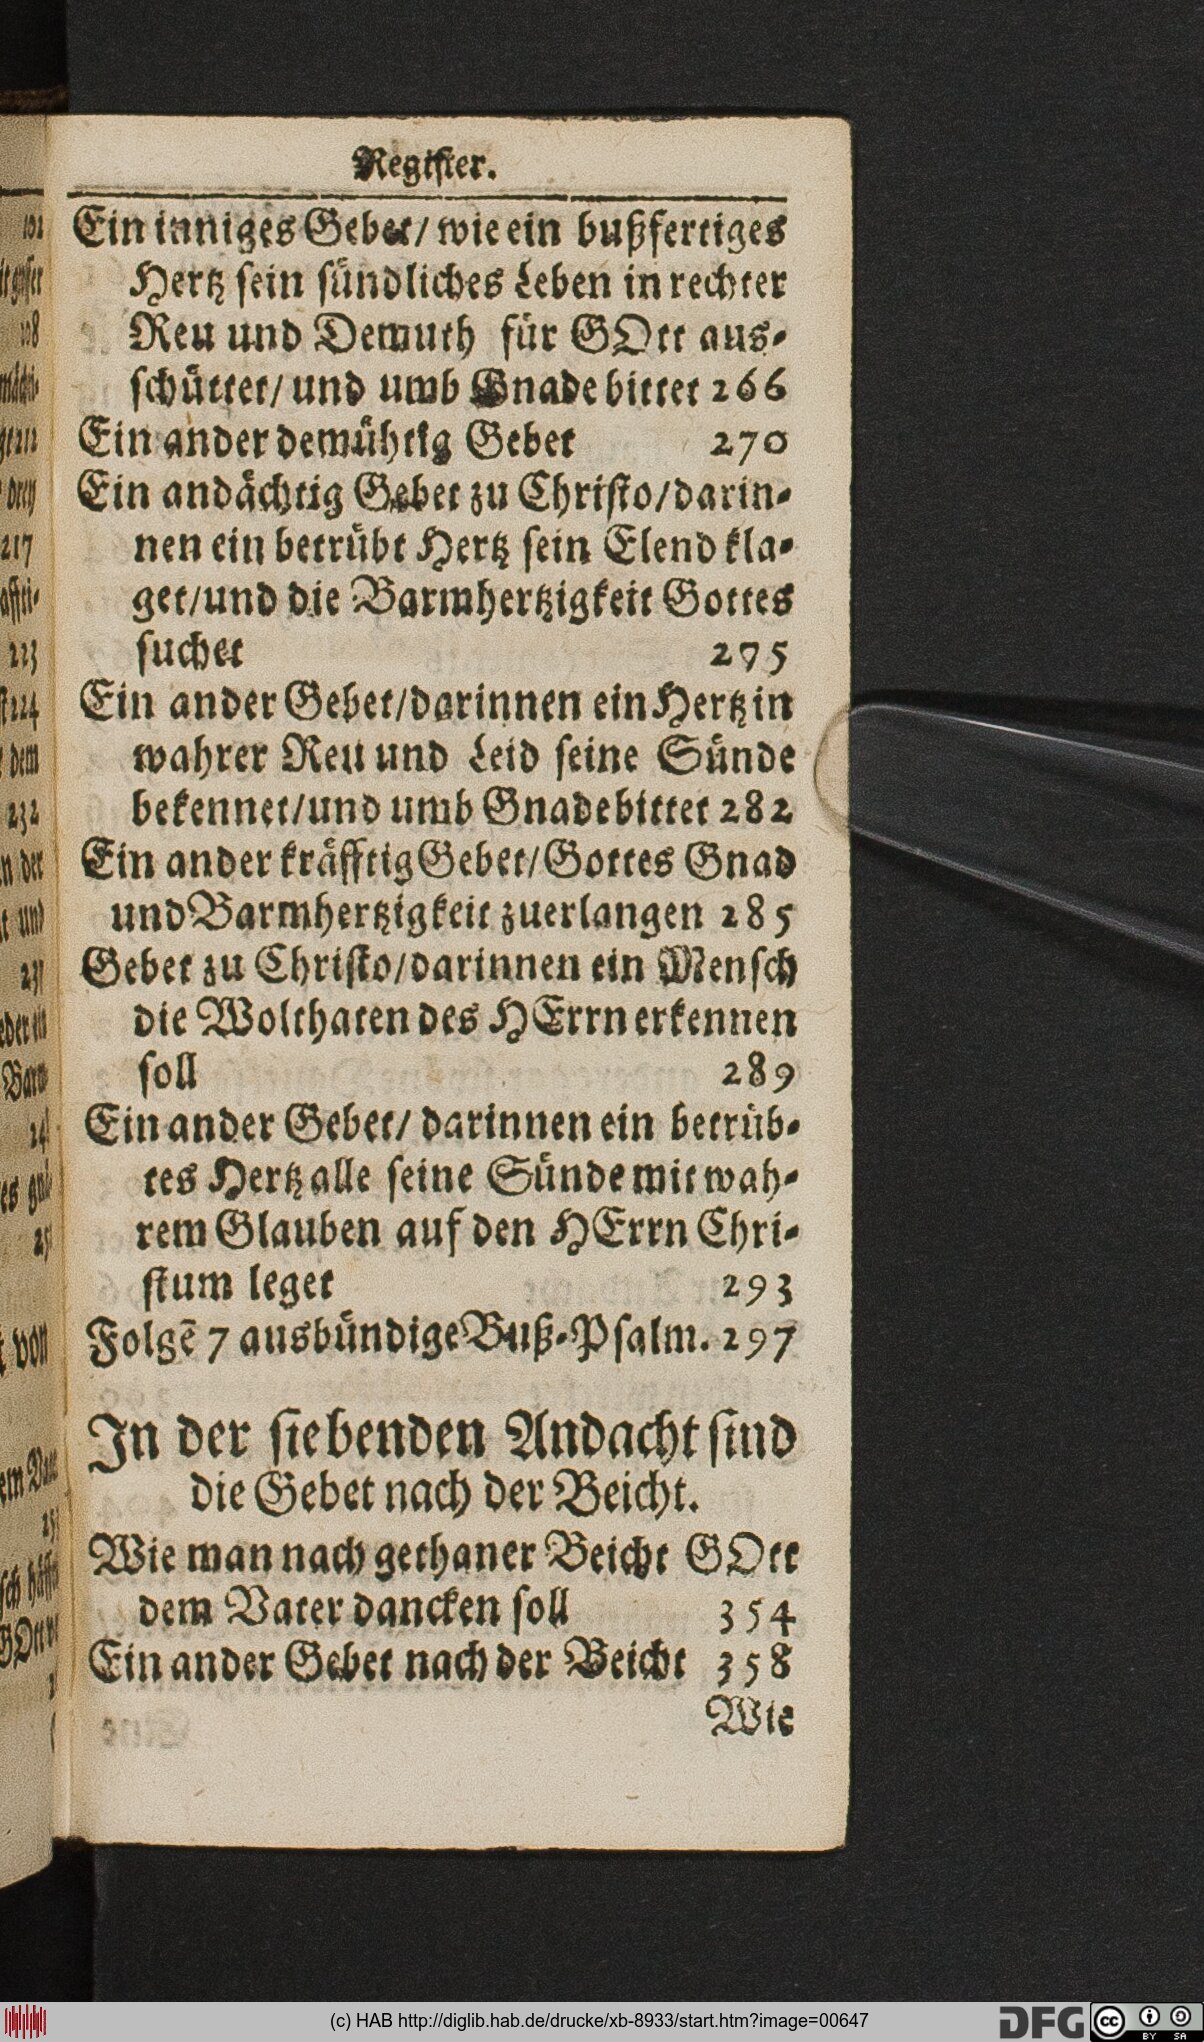 Register.
Ein inniges Gebet/ wie ein bußfertiges
Hertz sein sündliches Leben in rechter
Reu und Demuth für GOtt aus-
schüttet/ und umb Gnade bittet 266
Ein ander demühtig Gebet 270
Ein andächtig Gebet zu Christo/darin-
nen ein betrübt Hertz sein Elend kla-
get/und die Barmhertzigkeit Gottes
suchet 275
Ein ander Gebet/darinnen ein Hertz in
wahrer Reu und Leid seine Sünde
bekennet/und umb Gnade bittet 282
Ein ander kräfftig Gebet/Gottes Gnad
und Barmhertzigkeit zuerlangen 285
Gebet zu Christo/darinnen ein Mensch
die Wolthaten des HErrn erkennen
soll 289
Ein ander Gebet/ darinnen ein betrüb-
tes Hertz alle seine Sünde mit wah-
rem Glauben auf den HErrn Chri-
stum leget 293
Folgē 7 ausbündige Buß-Psalm. 297
In der siebenden Andacht sind
die Gebet nach der Beicht.
Wie man nach gethaner Beicht GOtt
dem Vater dancken soll 354
Ein ander Gebet nach der Beicht 358
Wie
(c) HAB http://diglib.hab.de/drucke/xb-8933/start.htm?image=00647
DFG
CC BY SA